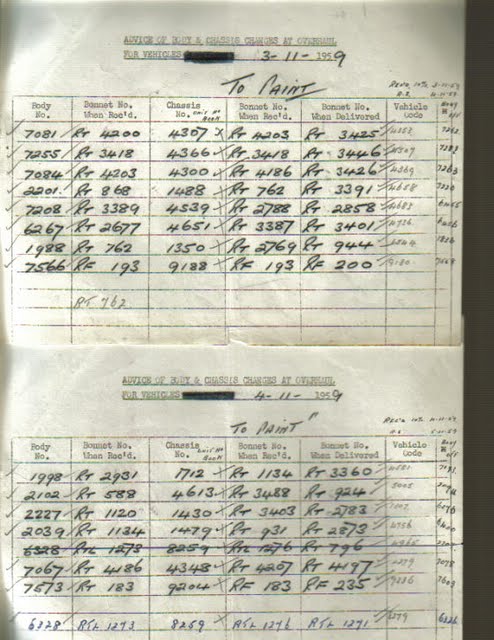 ADVICE OF BODY & CHASSIS CHANGES AT OVERHAUL
FOR VEHICLES 3-11-1959
To PAINT
Body No. Bonnet No. When Rec'd. Chassis No. Bonnet No. When Rec'd. Bonnet No. When Delivered Vehicle Code
7081 RT 4200 4307 RT 4203 RT 3425
7255 RT 3418 4366 RT 3418 RT 3446
7084 RT 4203 4300 RT 4186 RT 3426
2201 RT 868 1488 RT 762 RT 3391
7208 RT 3389 4539 RT 2788 RT 2858
6267 RT 2677 4651 RT 3387 RT 3401
1988 RT 762 1350 RT 2769 RT 944
7566 RF 193 9188 RF 193 RF 200
RT 762
ADVICE OF BODY & CHASSIS CHANGES AT OVERHAUL
FOR VEHICLES 4-11-1959
"TO PAINT"
Body No. Bonnet No. When Rec'd. Chassis No. Bonnet No. When Rec'd. Bonnet No. When Delivered Vehicle Code
1998 RT 2931 1712 RT 1134 RT 3360
2102 RT 588 4613 RT 3488 RT 924
2227 RT 1120 1430 RT 3403 RT 2783
2039 RT 1134 1479 RT 931 RT 2873
6328 RTL 1273 8259 RTL 1276 RT 796
7067 RT 4186 4348 RT 4207 RT 4197
7573 RT 183 9204 RF 183 RF 235
6328 RTL 1273 8259 RTL 1276 RTL 1271